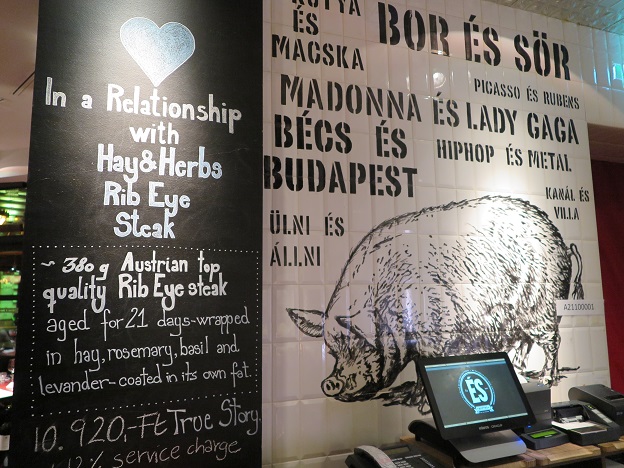 In a Relationship
with
Hay&Herbs
Rib Eye
Steak
~ 380g Austrian top
quality Rib Eye steak
aged for 21 days-wrapped
in hay, rosemary, basil and
levander-coated in its own fat.
10. 920,-Ft True Story
12% service charge
KUTYA
ÉS
MACSKA
BOR ÉS SÖR
PICASSO ÉS RUBENS
MADONNA ÉS LADY GAGA
BÉCS ÉS
BUDAPEST
HIPHOP ÉS METAL
KANÁL ÉS
VILLA
ÜLNI ÉS
ÁLLNI
A21100001
ÉS